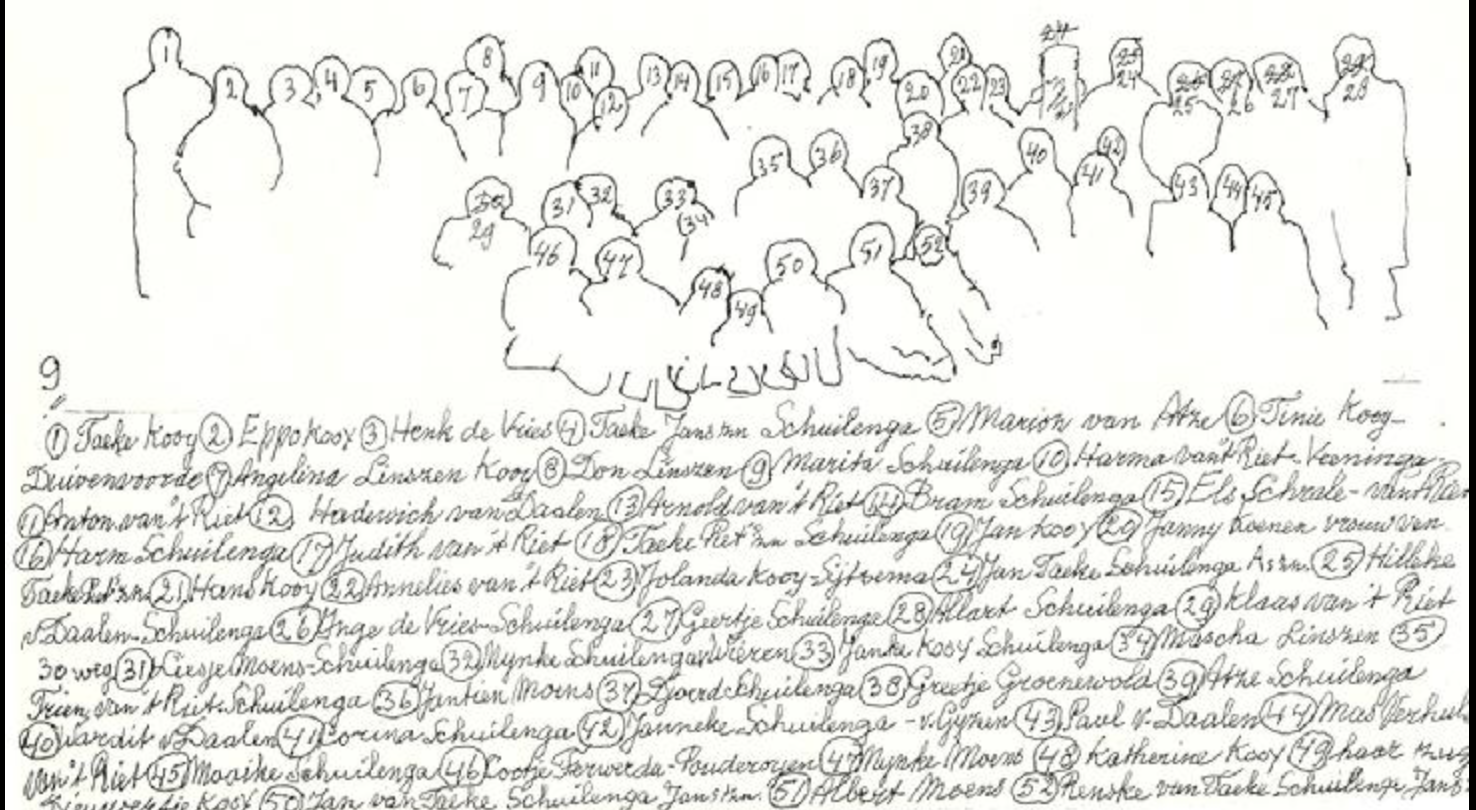 1
2
3
4
5
6
7
8
9
10
11
12
13
14
15
16
17
18
19
20
21
22
23
24
25
24
25
26
27
28
29
31
32
33
34
35
36
37
38
39
40
41
42
43
44
45
46
47
48
49
50
51
52
9
① Taeke Kooy ② Eppo Kooy ③ Henk de Vries ④ Taeke Janszn Schuilenga ⑤ Marion van Atze ⑥ Tinie Kooy-
Duivenvoorde ⑦ Angelina Linszen Kooy ⑧ Don Linszen ⑨ Marita Schuilenga ⑩ Harma van't Riet-Veeninga
⑪ Anton van 't Riet ⑫ Hadewich van Daalen ⑬ Arnold van 't Riet ⑭ Bram Schuilenga ⑮ Els Schrale-van
⑯ Harm Schuilenga ⑰ Judith van 't Riet ⑱ Taeke Piet'zn Schuilenga ⑲ Jan Kooy ⑳ Janny Koenen vrouw van
Taeke Piet'zn ㉑ Hans Kooy ㉒ Annelies van 't Riet ㉓ Jolanda Kooy-Sijtsema ㉔ Jan Taeke Schuilenga ㉕ Hilleke
v. Daalen-Schuilenga ㉖ Inge de Vries-Schuilenga ㉗ Geertje Schuilenga ㉘ Allart Schuilenga ㉙ Klaas van 't Riet
30 weg ㉛ Liesje Moens-Schuilenga ㉜ Mynke Schuilenga ㉝ Janke Kooy Schuilenga ㉞ Mascha Linszen ㉟
Trien van 't Riet-Schuilenga ㊱ Jantien Moens ㊲ Sjoerd Schuilenga ㊳ Greetje Groenewold ㊴ Atze Schuilenga
㊵ Vardit v. Daalen ㊶ Corina Schuilenga ㊷ Janneke Schuilenga - v. Gyzen ㊸ Paul v. Daalen ㊹ Mas
van 't Riet ㊺ Maaike Schuilenga ㊻ Lootje Ferwerda-Pouderoyen ㊼ Mynke Moens ㊽ Katherine Kooy ㊾ haar
Kooy ㊿ Jan van Taeke Schuilenga Janszn. (51) Albert Moens (52) Renske van Taeke Schuilenga